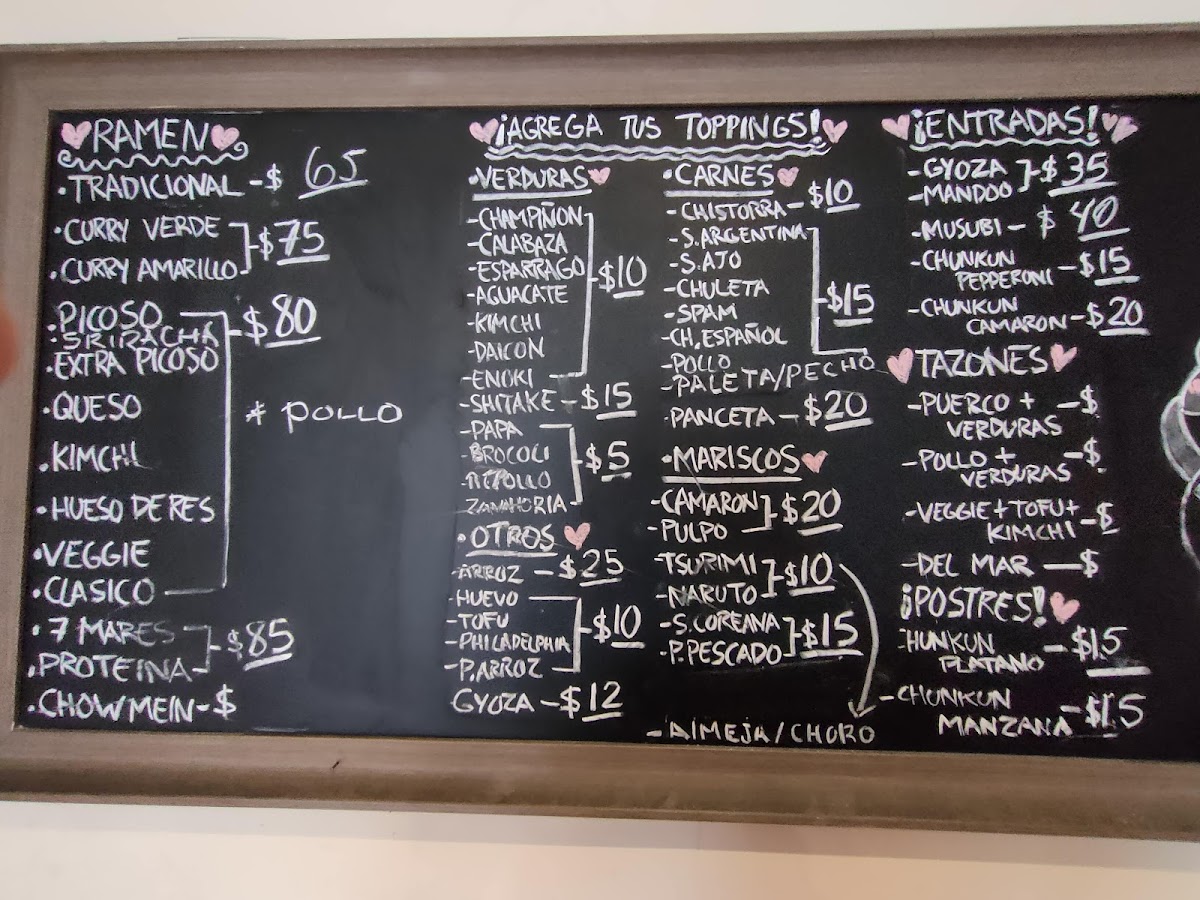 RAMEN
·TRADICIONAL -$ 65
·CURRY VERDE
·CURRY AMARILLO -$75
·PICOSO
·SRIRACHA -$80
·EXTRA PICOSO
·QUESO
* POLLO
·KIMCHI
·HUESO DE RES
·VEGGIE
·CLASICO
·7 MARES
·PROTEINA -$85
·CHOWMEIN-$
¡AGREGA TUS TOPPINGS!
·VERDURAS
-CHAMPIÑON
-CALABAZA
-ESPARRAGO -$10
-AGUACATE
-KIMCHI
-DAICON
-ENOKI
-SHITAKE -$15
-PAPA
-BROCOLI -$5
-REPOLLO
ZANAHORIA
·OTROS
-ARROZ -$25
-HUEVO
-TOFU -$10
-PHILADELPHIA
-P.ARROZ
GYOZA -$12
·CARNES
-CHISTORRA- $10
-S.ARGENTINA
-S.AJO
-CHULETA -$15
-SPAM
-CH.ESPAÑOL
-POLLO
-PALETA/PECHO
-PANCETA -$20
·MARISCOS
-CAMARON
-PULPO $20
-TSURIMI
-NARUTO $10
-S.COREANA
-P.PESCADO $15
-AlMEJA/CHORO
¡ENTRADAS!
-GYOZA
-MANDOO $35
-MUSUBI- $ 40
-CHUNKUN
PEPPERONI -$15
-CHUNKUN
CAMARON -$20
TAZONES
-PUERCO + -$
VERDURAS
-POLLO + -$
VERDURAS
-VEGGIE+TOFU+
KIMCHI -$
-DEL MAR -$
¡POSTRES!
-HUNKUN
PLATANO -$15
-CHUNKUN
MANZANA -$15